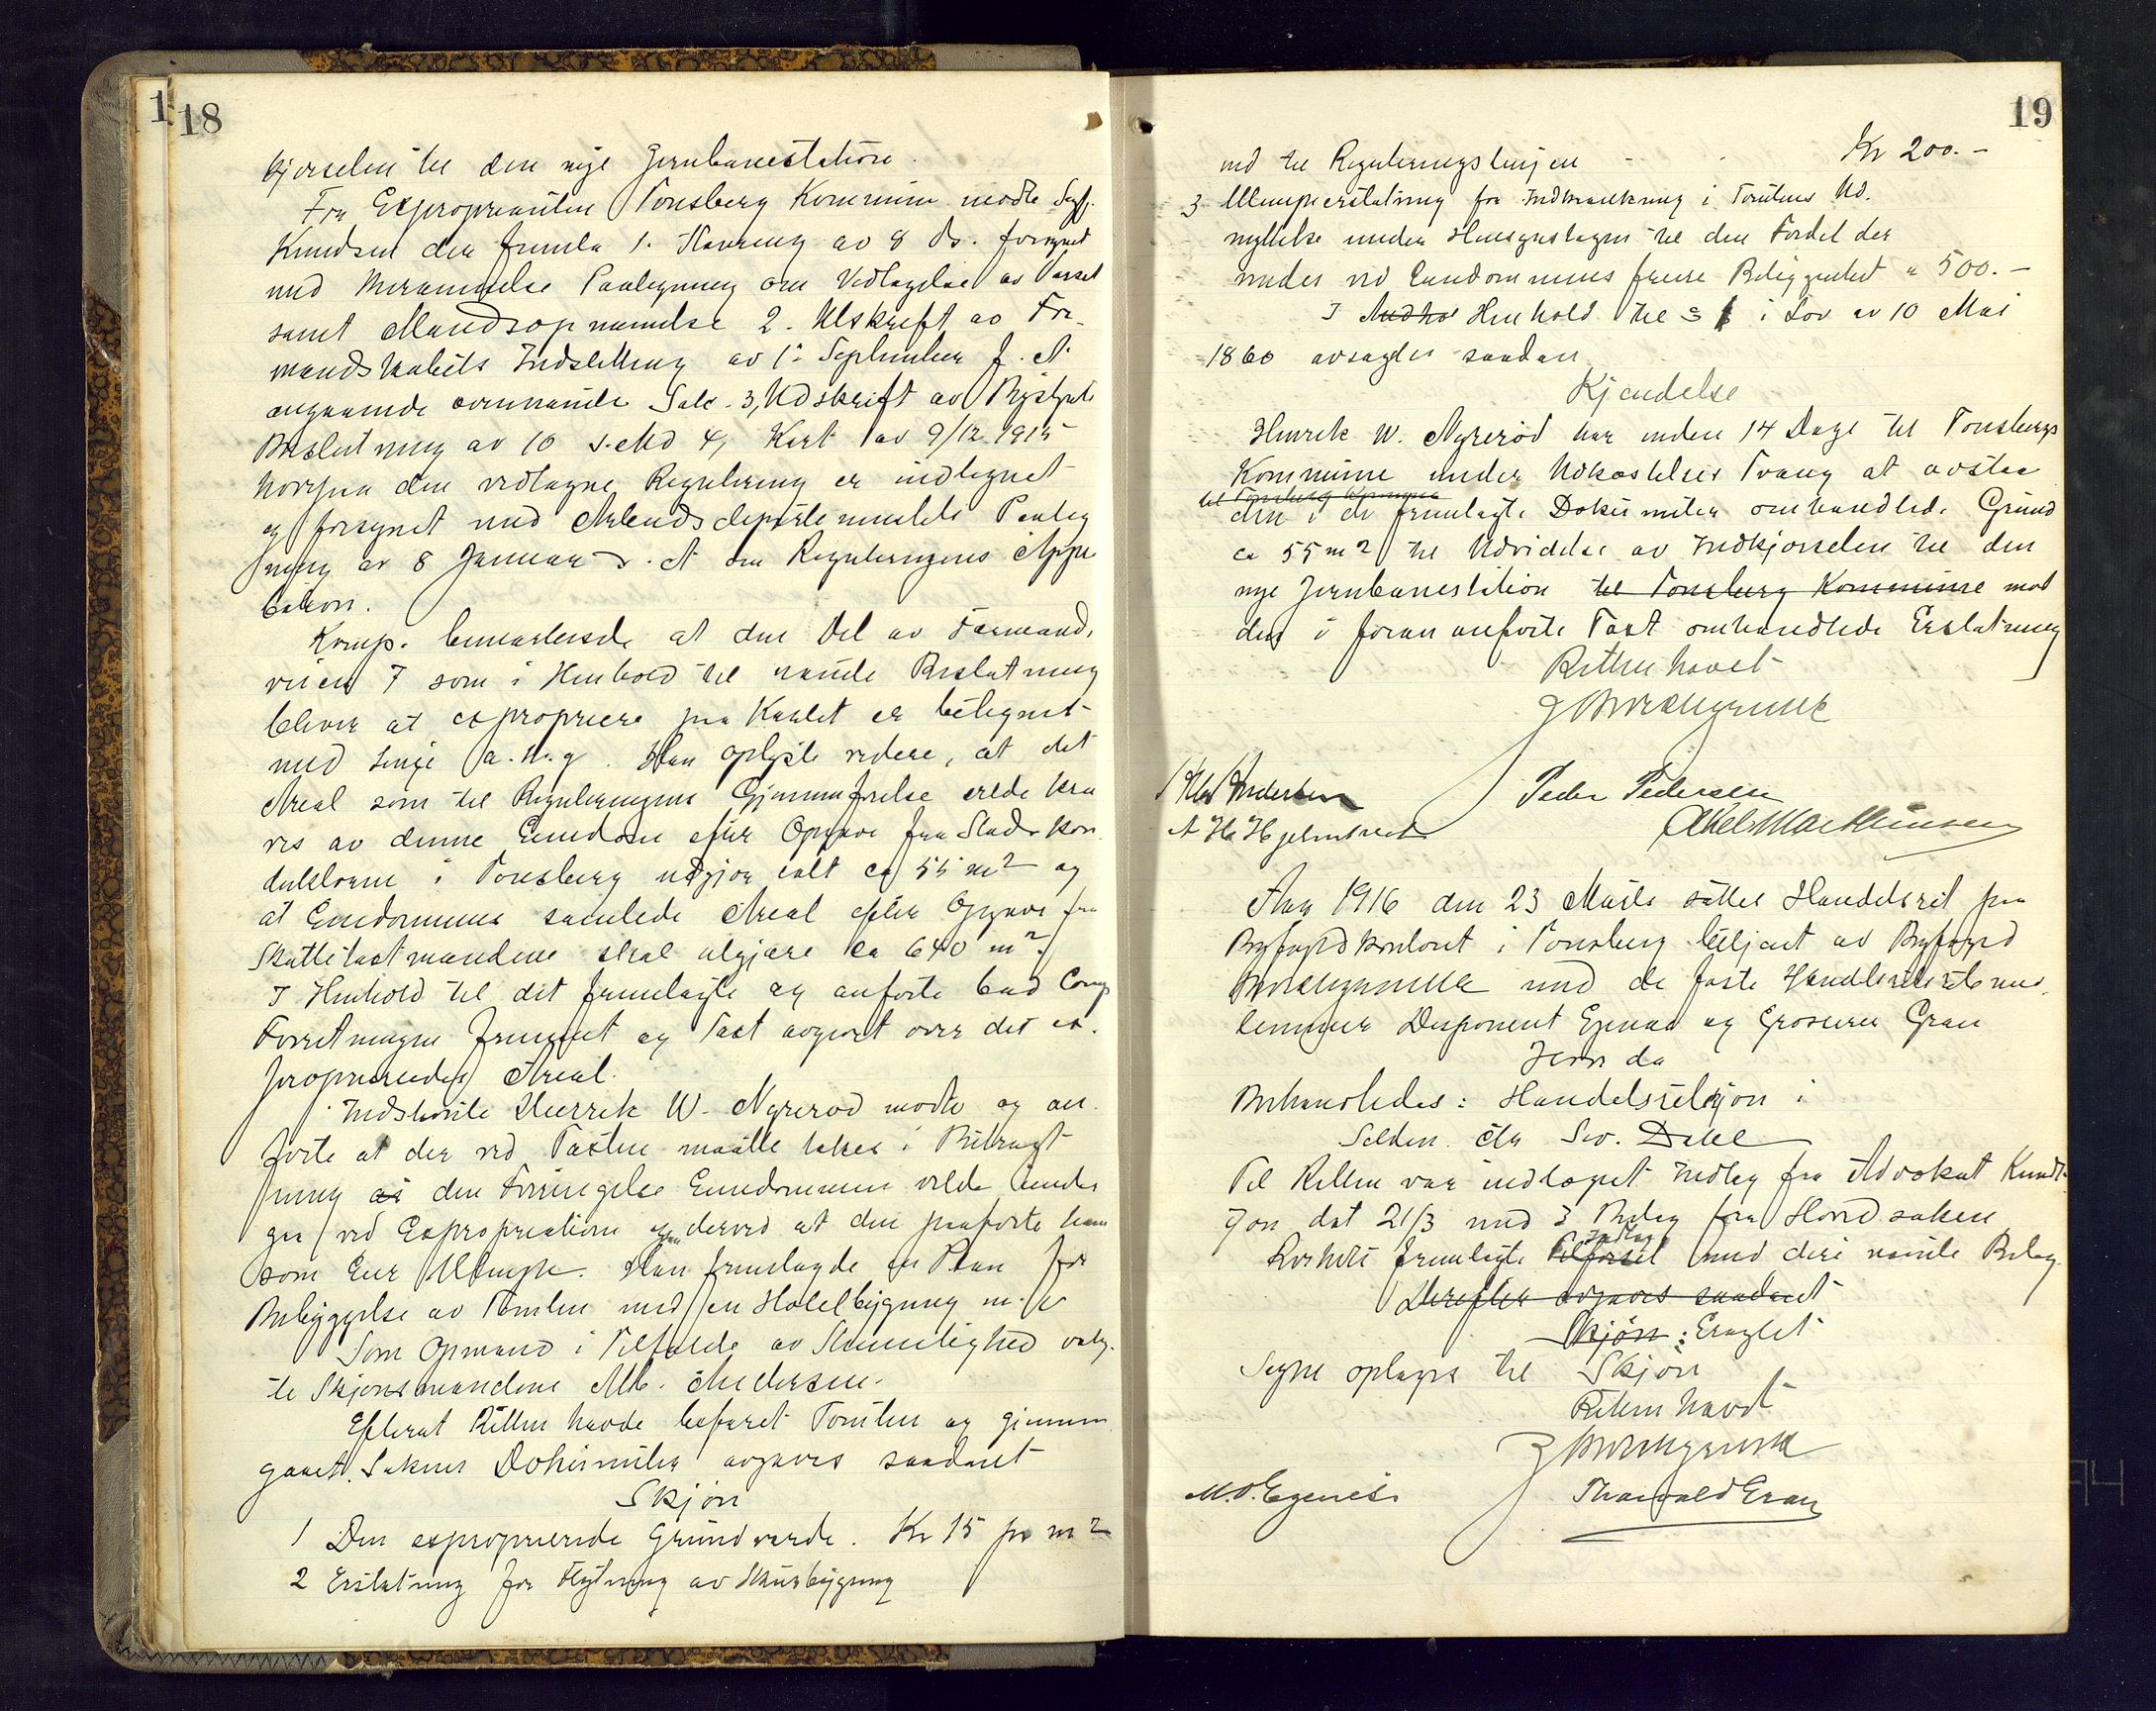 18
kjørselen til den nye Jernbanestation.
Fra Expropriantens Tønsberg Kommune mødte Sagf.
Knudsen der fremla 1. Stevning av 8 ds. forsynet
med Paategning om Vedtagelse av Varsel
samt Mandsopnævnelse 2. Utskrift av For-
mandskabets Indstilling av 1. September f. A.
angaaende ovennævnte Sak. 3, Utskrift av Bystyrets
Beslutning av 10 s. Md 4, Kart av 9/12 1915
hvorpaa den vedtagne Regulering er indtegnet
og forsynet med Arbeidsdepartementets Paateg
ning av 8 Januar d. A. om Reguleringens Appro
bation.
Komp. bemærkede at den Del av Farmands
veien 7 som i Henhold til nævnte Beslutning
bliver at expropriere paa Kartet er betegnet
med Linje a. h. g. Han oplyste videre, at det
Areal som til Reguleringens Gjennemførelse vilde kræ
ves av denne Eiendom efter Opgave fra Stadskon
duktøren i Tønsberg utgjør ialt ca 55 m2 og
at Eiendommens samlede Areal efter Opgave fra
Skattetakstmændene skal utgjøre ca 640 m2.
I Henhold til det fremlagte og anførte bad Comp
Forretningen fremmet og Takst avgivet over det ex-
proprierede Areal.
Indstevnte Henrik W. Nyrerød mødte og an-
førte at der ved Taksten maatte tages i Betragt
ning den Forringelse Eiendommen vilde undergaa
ved Expropriationen derved at den paaførte ham
som Eier Ulempe. Han fremlagde en Plan for
Bebyggelse av Tomten med en Hotelbygning m. v.
Som Opmand i Tilfælde av Stemmelighed valg-
te Skjønsmændene Alb. Andersen.
Efterat Retten havde befaret Tomten og gjennem
gaaet Sakens Dokumenter avgaves saadant
Skjøn
1 Den exproprierede Grund værde. Kr 15 pr m2
2 Erstatning for Flytning av Skurbygning
19
ind til Reguleringslinjen - - Kr 200.-
3 Ulempeerstatning for Indskrænkning i Tomtens Ud-
nyttelse under Hensyntagen til den Fordel der
vindes ved Eiendommens friere Beliggenhed " 500.-
I Henhold til § i Lov av 10 Mai
1860 avsagdes saadan
Kjendelse
Henrik W. Nyrerød har inden 14 Dage til Tønsbergs
Kommune under Udkastelses Tvang at avstaa
til Tønsberg Kommune
den i de fremlagte Dokumenter omhandlede Grund
ca 55 m2 til Udvidelse av Indkjørselen til den
nye Jernbanestation til Tønsberg Kommune mot
den i foran anførte Takst omhandlede Erstatning
Retten hævet
Alb Andersen Peder Pedersen
A. H. Hjelmtvedt Abel Mathiesen
Aar 1916 den 23 Marts sattes Handelsret paa
Byfogdkontoret i Tønsberg betjent av Byfoged
med de faste Handelsretsmed-
lemmer Disponent Egenæs og Grosserer Gran
Hvor da
Behandledes: Handelsretsskjøn i
Saken Sev. Dahl
Til Retten var indkommet Indlæg fra Advokat Knudt-
zon dat 21/3 med 3 Bilag fra Hovedsaken
Indlæg
Rettens fremlagte med deri nævnte Bilag.
Derefter avgaves saadant
Skjøn: Eragtet
Sagen optages til Skjøn
Retten hævet
M.O. Egenæs Thorvald Gran